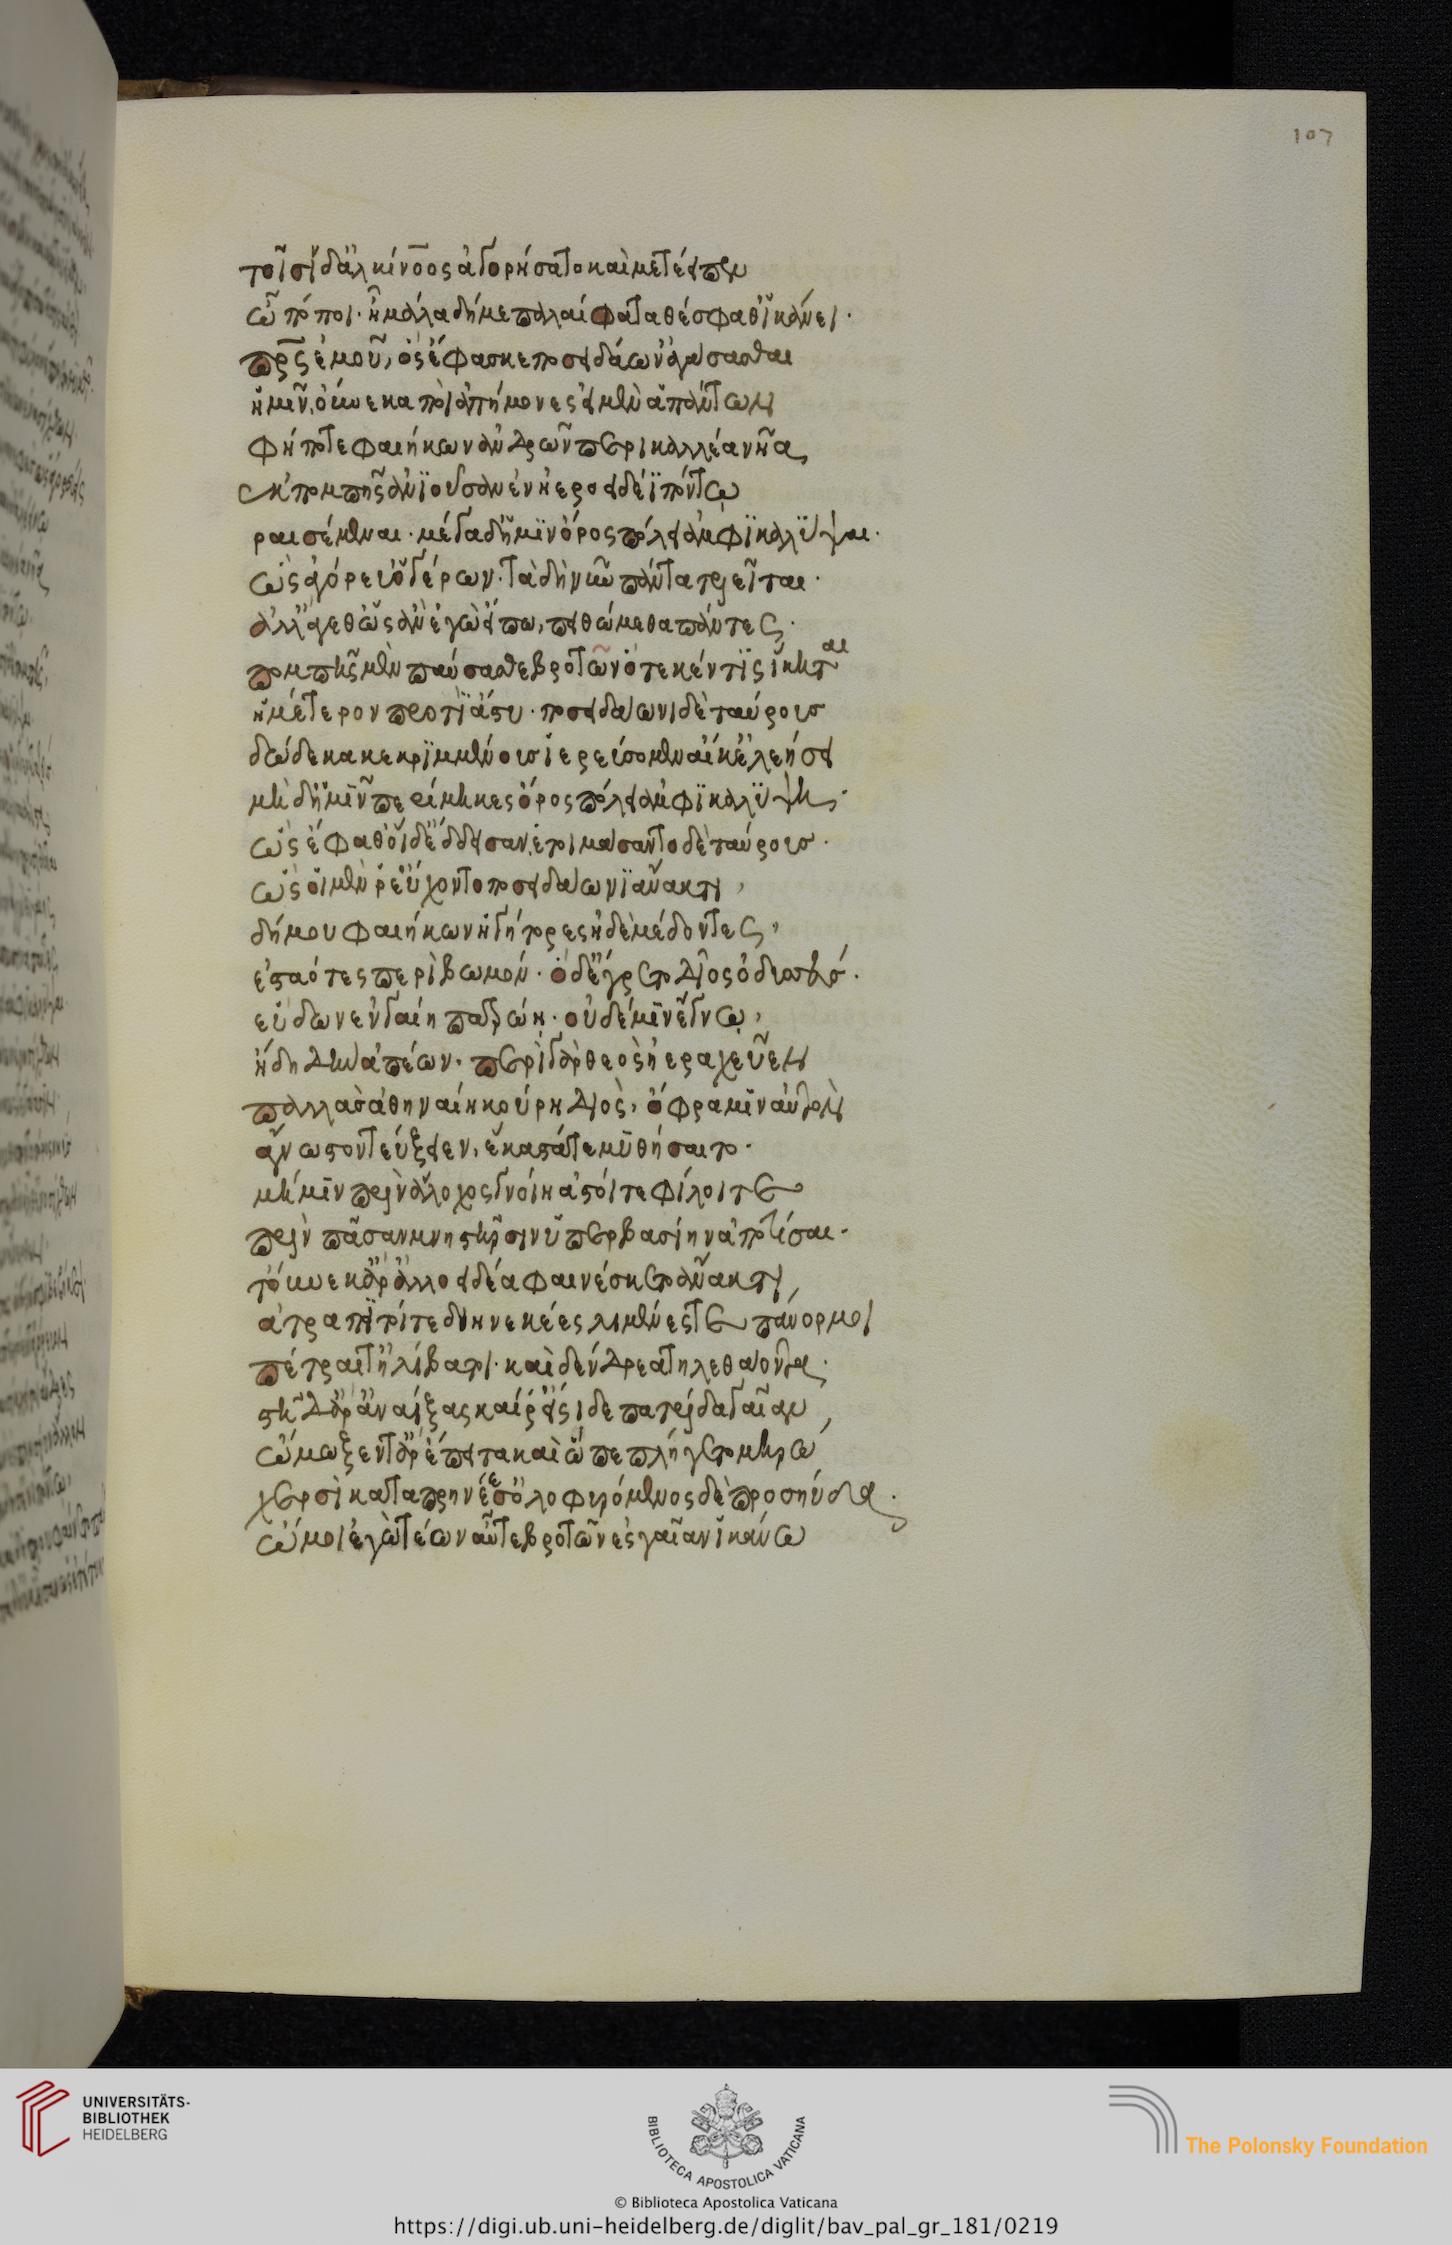 107
τοῖσι δ' ἀλκίνοος ἀγορήσατο καὶ μετέειπεν
ὢ πόποι· ἦ μάλα δή με παλαίφατα θέσφαθ' ἱκάνει·
πατρὸς ἐμοῦ, ὃς ἔφασκε ποσειδάων' ἀγάσασθαι
ἡμῖν, οὕνεκα πομποὶ ἀπήμονές εἰμεν ἁπάντων
φῆ ποτε φαιήκων ἀνδρῶν περικαλλέα νῆα
ἐκ πομπῆς ἀνιοῦσαν ἐν ἠεροειδέϊ πόντω
ραισέμεναι· μέγα δ' ἧμιν ὄρος πόλει ἀμφικαλύψαι·
ὣς ἀγόρευ' ὁ γέρων· τὰ δὴ νῦν πάντα τελεῖται·
ἀλλ' ἄγεθ' ὡς ἂν ἐγὼ εἴπω, πειθώμεθα πάντες·
πομπῆς μὲν παύσασθε βροτῶν ὅτε κέν τις ἵκηται
ἡμέτερον προτὶ ἄστυ· ποσειδάωνι δὲ ταύροις
δώδεκα κεκριμμένοισ ἱερεύσομεν αἴ κ' ἐλεήσει
μὴ δ' ἡμῖν περίμηκες ὄρος πόλει ἀμφικαλύψη·
ὣς ἔφαθ' οἱ δ' ἔδδεισαν, ἑτοιμάσαντο δὲ ταύροις·
ὣς οἱ μέν ῥ' εὔχοντο ποσειδάωνι ἄνακτι,
δήμου φαιήκων ἡγήτορες ἠδὲ μέδοντες,
ἑσταότες περὶ βωμόν· ὁ δ' ἔγρετο δῖος ὀδυσσεύς·
εὕδων ἐν γαίη πατρώη· οὐδέ μιν ἔγνω,
ἤδη δὴν ἀπέων· περὶ γὰρ θεὸς ἠέρα χεῦεν
παλλὰς ἀθηναίη κούρη διὸς, ὄφρα μιν αὐτὸν
ἄγνωστον τεύξειεν, ἕκαστά τε μυθήσαιτο·
μή μιν πρὶν ἄλοχος γνοίη ἀστοί τε φίλοι τε
πρὶν πᾶσαν μνηστῆρσιν ὑπερβασίην ἀποτίσαι·
τούνεκ' ἄρ' ἀλλοειδέα φαινέσκετο ἄνακτι,
ἀτραπιτοί τε διηνεκέες λιμένες τε πάνορμοι
πέτραι τ' ἠλίβατοι· καὶ δένδρεα τηλεθάοντα·
στῆ δ' ἄρ' ἀναίξας καί ῥ' εἴσιδε πατρίδα γαῖαν,
ὤμωξέν τ' ἄρ' ἔπειτα καὶ ὣ πεπλήγετο μηρώ
χερσὶ καταπρηνέεσσ' ὀλοφυρόμενος δὲ προσηύδα·
ὤ μοι ἐγὼ τέων αὖτε βροτῶν ἐς γαῖαν ἱκάνω
UNIVERSITÄTS-
BIBLIOTHEK
HEIDELBERG
BIBLIOTECA APOSTOLICA VATICANA
The Polonsky Foundation
© Biblioteca Apostolica Vaticana
https://digi.ub.uni-heidelberg.de/diglit/bav_pal_gr_181/0219